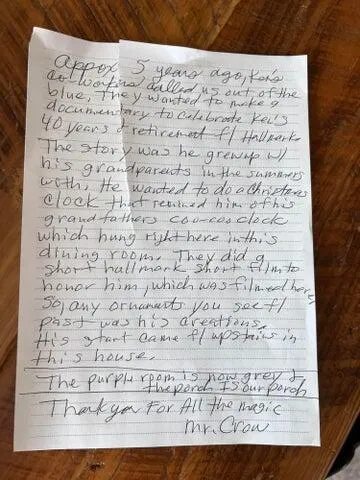 Appox 5 years ago, Ken's
co-workers, called us out of the
blue, They wanted to make a
documentary to celebrate Ken's
40 years & retirement f/ Hallmark.
The story was he grew up w/
his grandparents in the summers
with. He wanted to do a Christmas
clock that remined him of his
grandfathers coo-coo clock
which hung right here in this
dining room. They did a
short hallmark short film to
honor him, which was filmed here,
So, any ornaments you see f/
past was his creations.
His start came f/ upstairs in
this house.
The purple room is now grey &
the porch is our porch
Thank you For All the magic
Mr. Crow